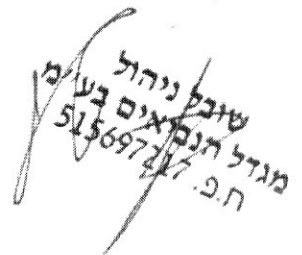 שובל ניהול
מגדל הנביאים בע"מ
ח.פ. 515697217